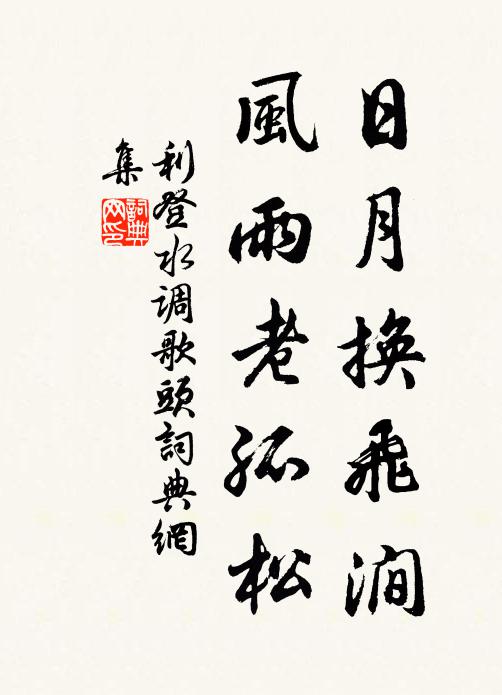 日月換飛澗
風雨老孤松
利登水调歌頭詞典網
集
詞典
网印